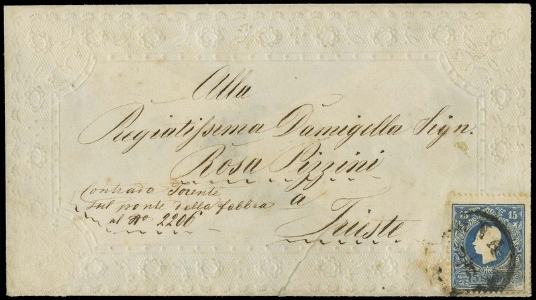 Alla
Pregiatissima Damigella Sign.
Rosa Pizzini
Contrada Torente
sul ponte della fabbra
al No. 2206
a
Trieste
15 15